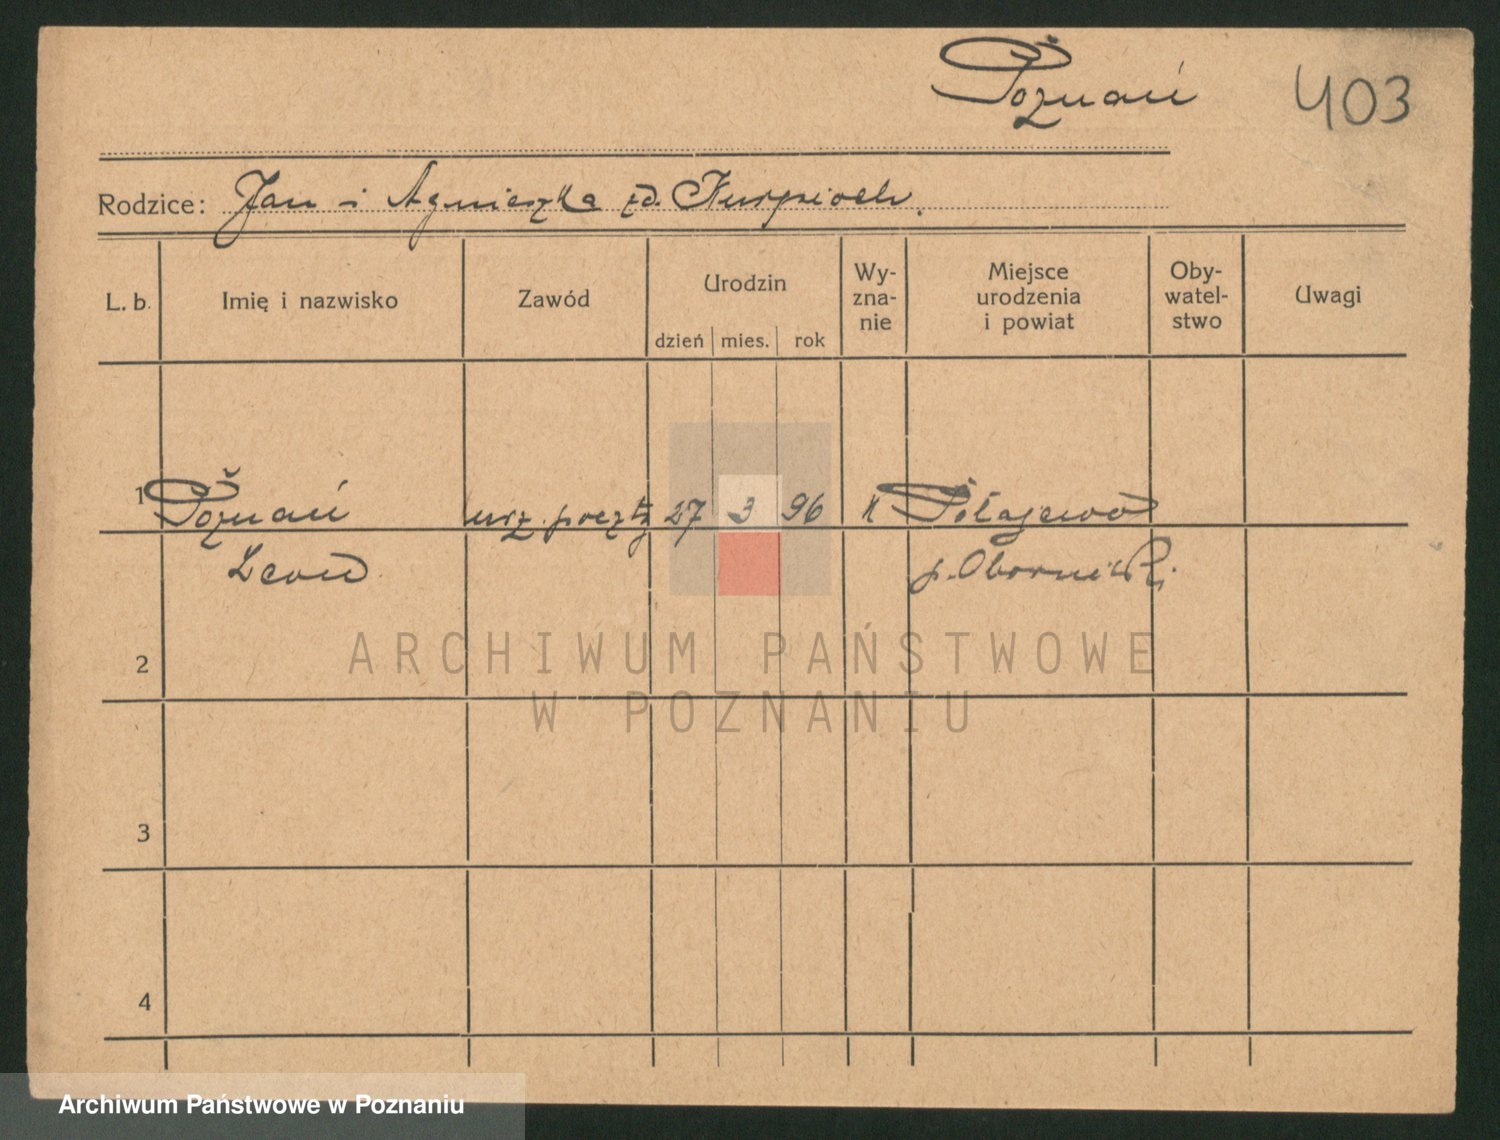 Požnań 403
Rodzice: Jan i Agnieszka zd. Kurpioch.
L. b. Imię i nazwisko Zawód Urodzin dzień mies. rok Wy-zna-nie Miejsce urodzenia i powiat Oby-watel-stwo Uwagi
1 Požnań urz. poczt 27 3 96 K Połajewo
Leon p. Oborniki
2
ARCHIWUM PAŃSTWOWE
W POZNANIU
3
4
Archiwum Państwowe w Poznaniu